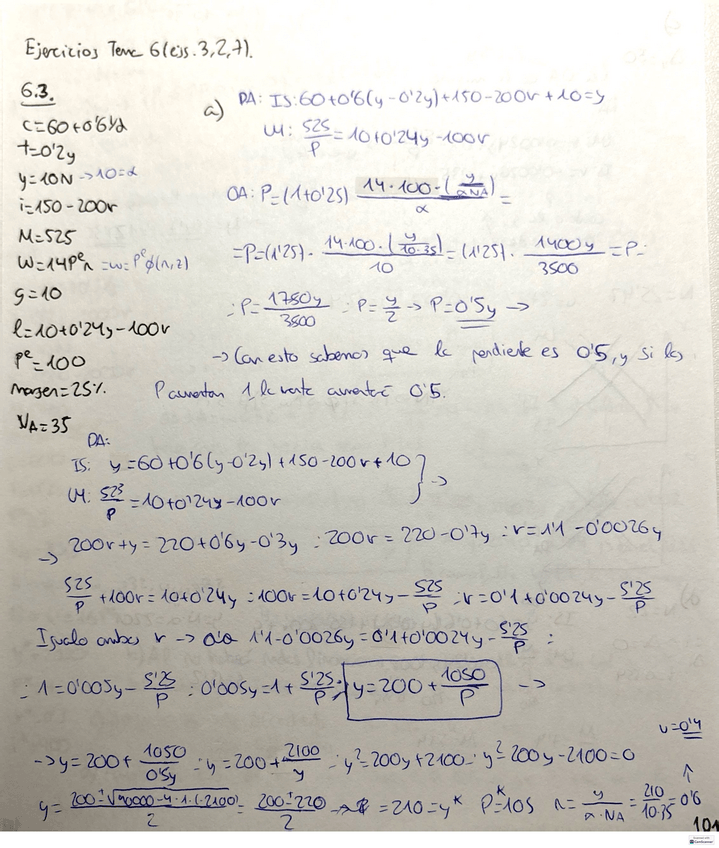 Ejercicios Tema 6 (ejs. 3, 2, 7).
6.3.
a) DA: IS: 60+0'6(y-0'2y)+150-200r+10=y
LM: 525/P = 10+0'24y-100r
C=60+0'6Yd
t=0'2y
y=10N → 10=α
i=150-200r
M=525
W=14Pᵉn =w=Pᵉϕ(n,z)
g=10
l=10+0'24y-100r
Pᵉ=100
margen=25%
NA=35
OA: P=(1+0'25) 14·100·(y/αNA)/α =
=P=(1'25)· 14·100·(y/10·35)/10 = (1'25)· 1400y/3500 =P=
: P= 1750y/3500 : P= y/2 → P=0'5y →
→ Con esto sabemos que la pendiente es 0'5, y si los
P aumentan 1, la renta aumenta 0'5.
DA:
IS: y=60+0'6(y-0'2y)+150-200r+10 } →
LM: 525/P =10+0'24y-100r
→ 200r+y=220+0'6y-0'3y : 200r=220-0'7y : r=1'1-0'0026y
525/P +100r=10+0'24y : 100r=10+0'24y- 525/P : r=0'1+0'0024y- 5'25/P
Igualo ambas r → 1'1-0'0026y=0'1+0'0024y- 5'25/P :
: 1=0'005y- 5'25/P : 0'005y=1+ 5'25/P : y=200+ 1050/P →
→ y=200+ 1050/0'5y : y=200+ 2100/y : y²=200y+2100 : y²-200y-2100=0
u=0'4
y= 200±√40000-4·1·(-2100)/2 = 200±220/2 → =210=yᴷ Pᴷ=105 n= y/α·NA = 210/10·35 =0'6
101